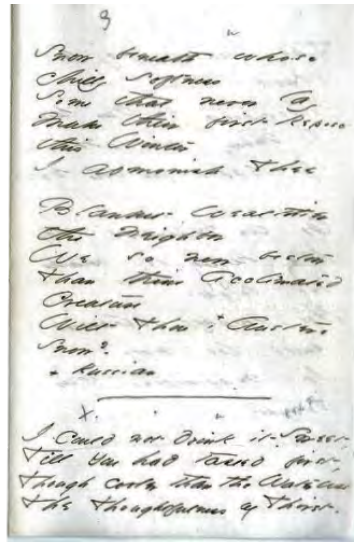 Snow beneath whose
Chilly Softness
Some that never lay
Make their first Repose
this Winter
I admonish Thee
Blanket Wealthier
the Neighbor
We so new bestow
Than thine Acclimated
Creature
Wilt Thou + Austere
Snow?
+ Russian
X.
I could not drink it, Sweet,
Till You had tasted first,
Though cooler than the Water was
The Thoughtfulness of Thirst.